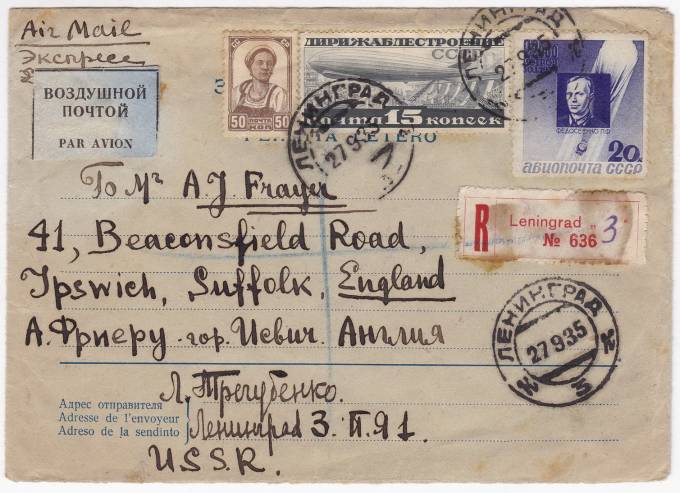 Air Mail
Экспресс
ВОЗДУШНОЙ
ПОЧТОЙ
PAR AVION
50 ПОЧТА 50
КОП
ДИРИЖАБЛЕСТРОЕНИЕ
СССР
почта 15 копеек
ФЕДОСЕЕНКО П.Ф.
20
АВИОПОЧТА СССР
ЛЕНИНГРАД
27 9 35
ЛЕНИНГРАД
27 9 35
LETERO
To Mr A. J. Frayer
41, Beaconsfield Road,
Ipswich, Suffolk, England
А. Фриеру гор. Исвич. Англия
R Leningrad „3
№ 636
ЛЕНИНГРАД
27 9 35
3
Л. Трегубенко.
Адрес отправителя
Adresse de l'envoyeur
Adreso de la sendinto
Ленинград 3. П.91.
U.S.S.R.